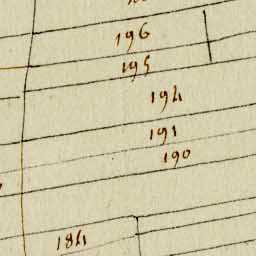 196
195
194
191
190
184